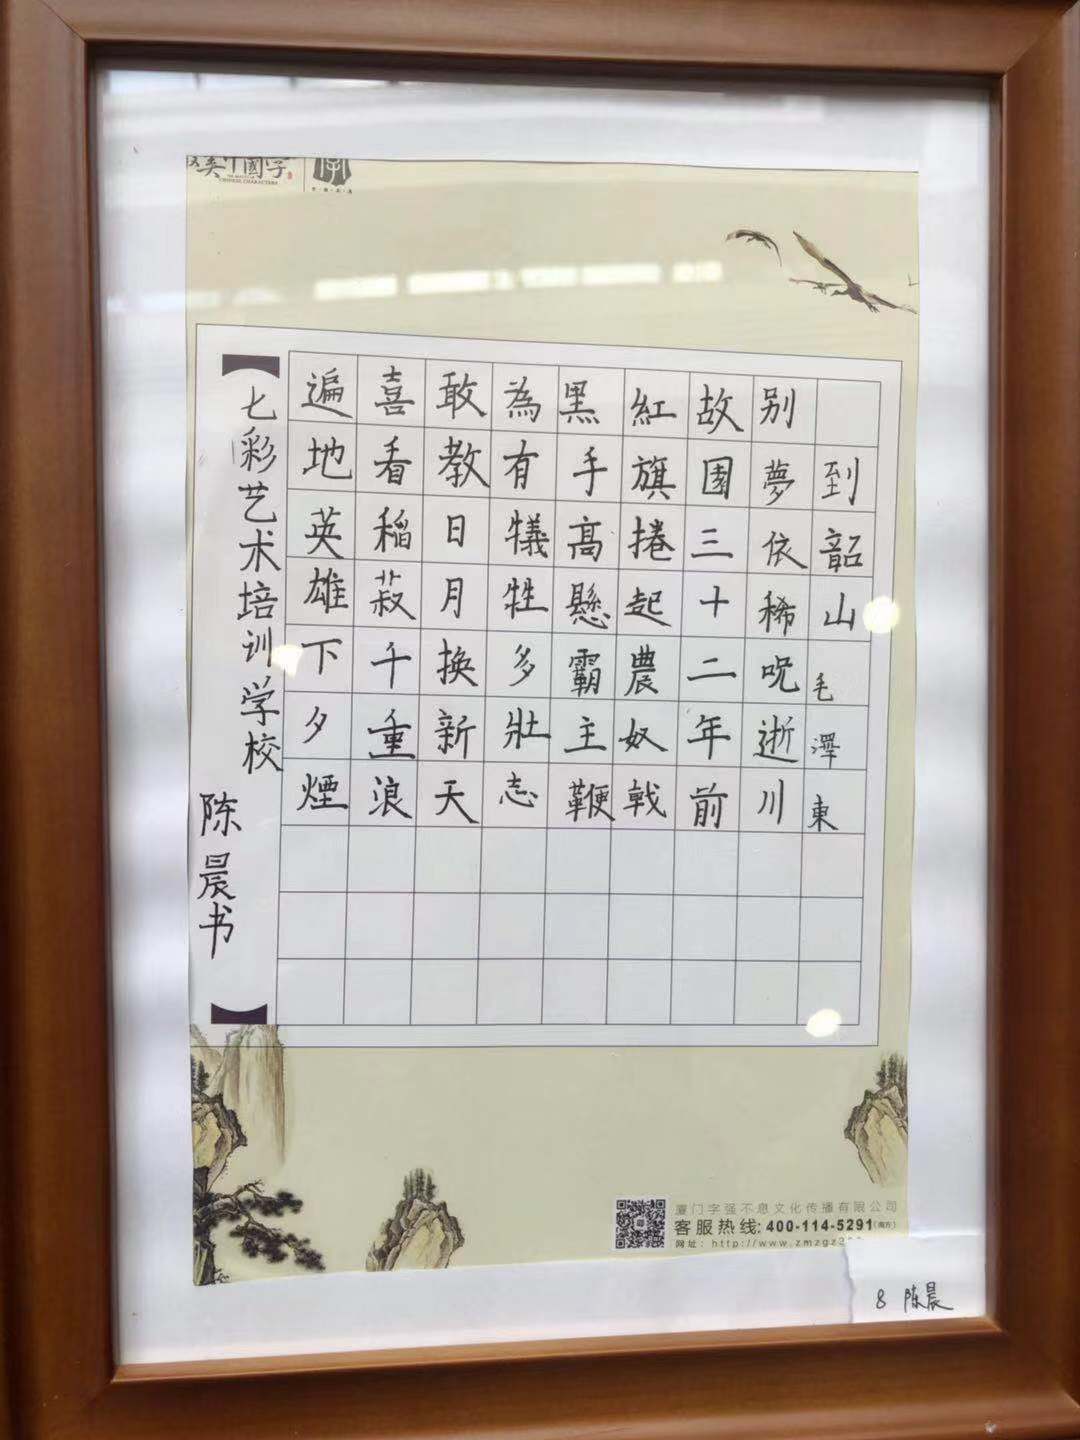 美中國字
CHINESE CHARACTERS
到韶山毛澤東
别夢依稀呪逝川
故園三十二年前
紅旗捲起農奴戟
黑手高懸霸主鞭
為有犠牲多壯志
敢教日月換新天
喜看稲菽千重浪
遍地英雄下夕煙
七彩艺术培训学校
陈晨书
厦门字强不息文化传播有限公司
客服热线:400-114-5291
网址: http://www.zmzgz
8 陈晨